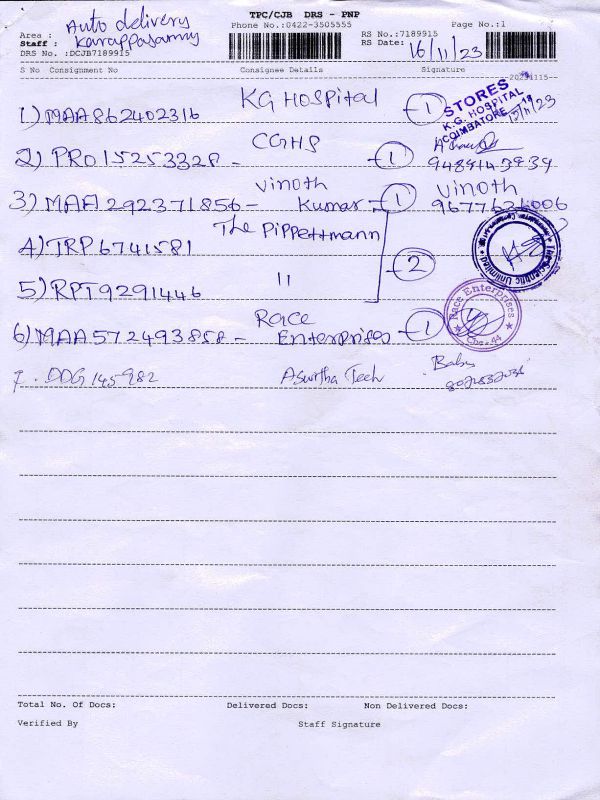 TPC/CJB DRS - PNP
Auto delivery
Phone No.:0422-3505555
Page No.:1
Area :
RS No.:7189915
Staff : Karappasamy
RS Date: 16/11/23
DRS No. :DCJB7189915
S No Consignment No Consignee Details Signature
20231115--
1) MAA862402316 KG Hospital 1
STORES
K.G. HOSPITAL
COIMBATORE
2) PRO15253328 - CGHS 1
9489143939
3) MAA292371856 - Vinoth Kumar - 1 Vinoth
9677626006
4) TRP6741581 The Pippettmann
2
5) RPT9291446 11
The Scientific Unlimited
6) MAA572493858 - Race Enterprises 1
Race Enterprises
Cbe - 44
7. DDG145982 Aswitha Tech Babu
Total No. Of Docs: Delivered Docs: Non Delivered Docs:
Verified By Staff Signature